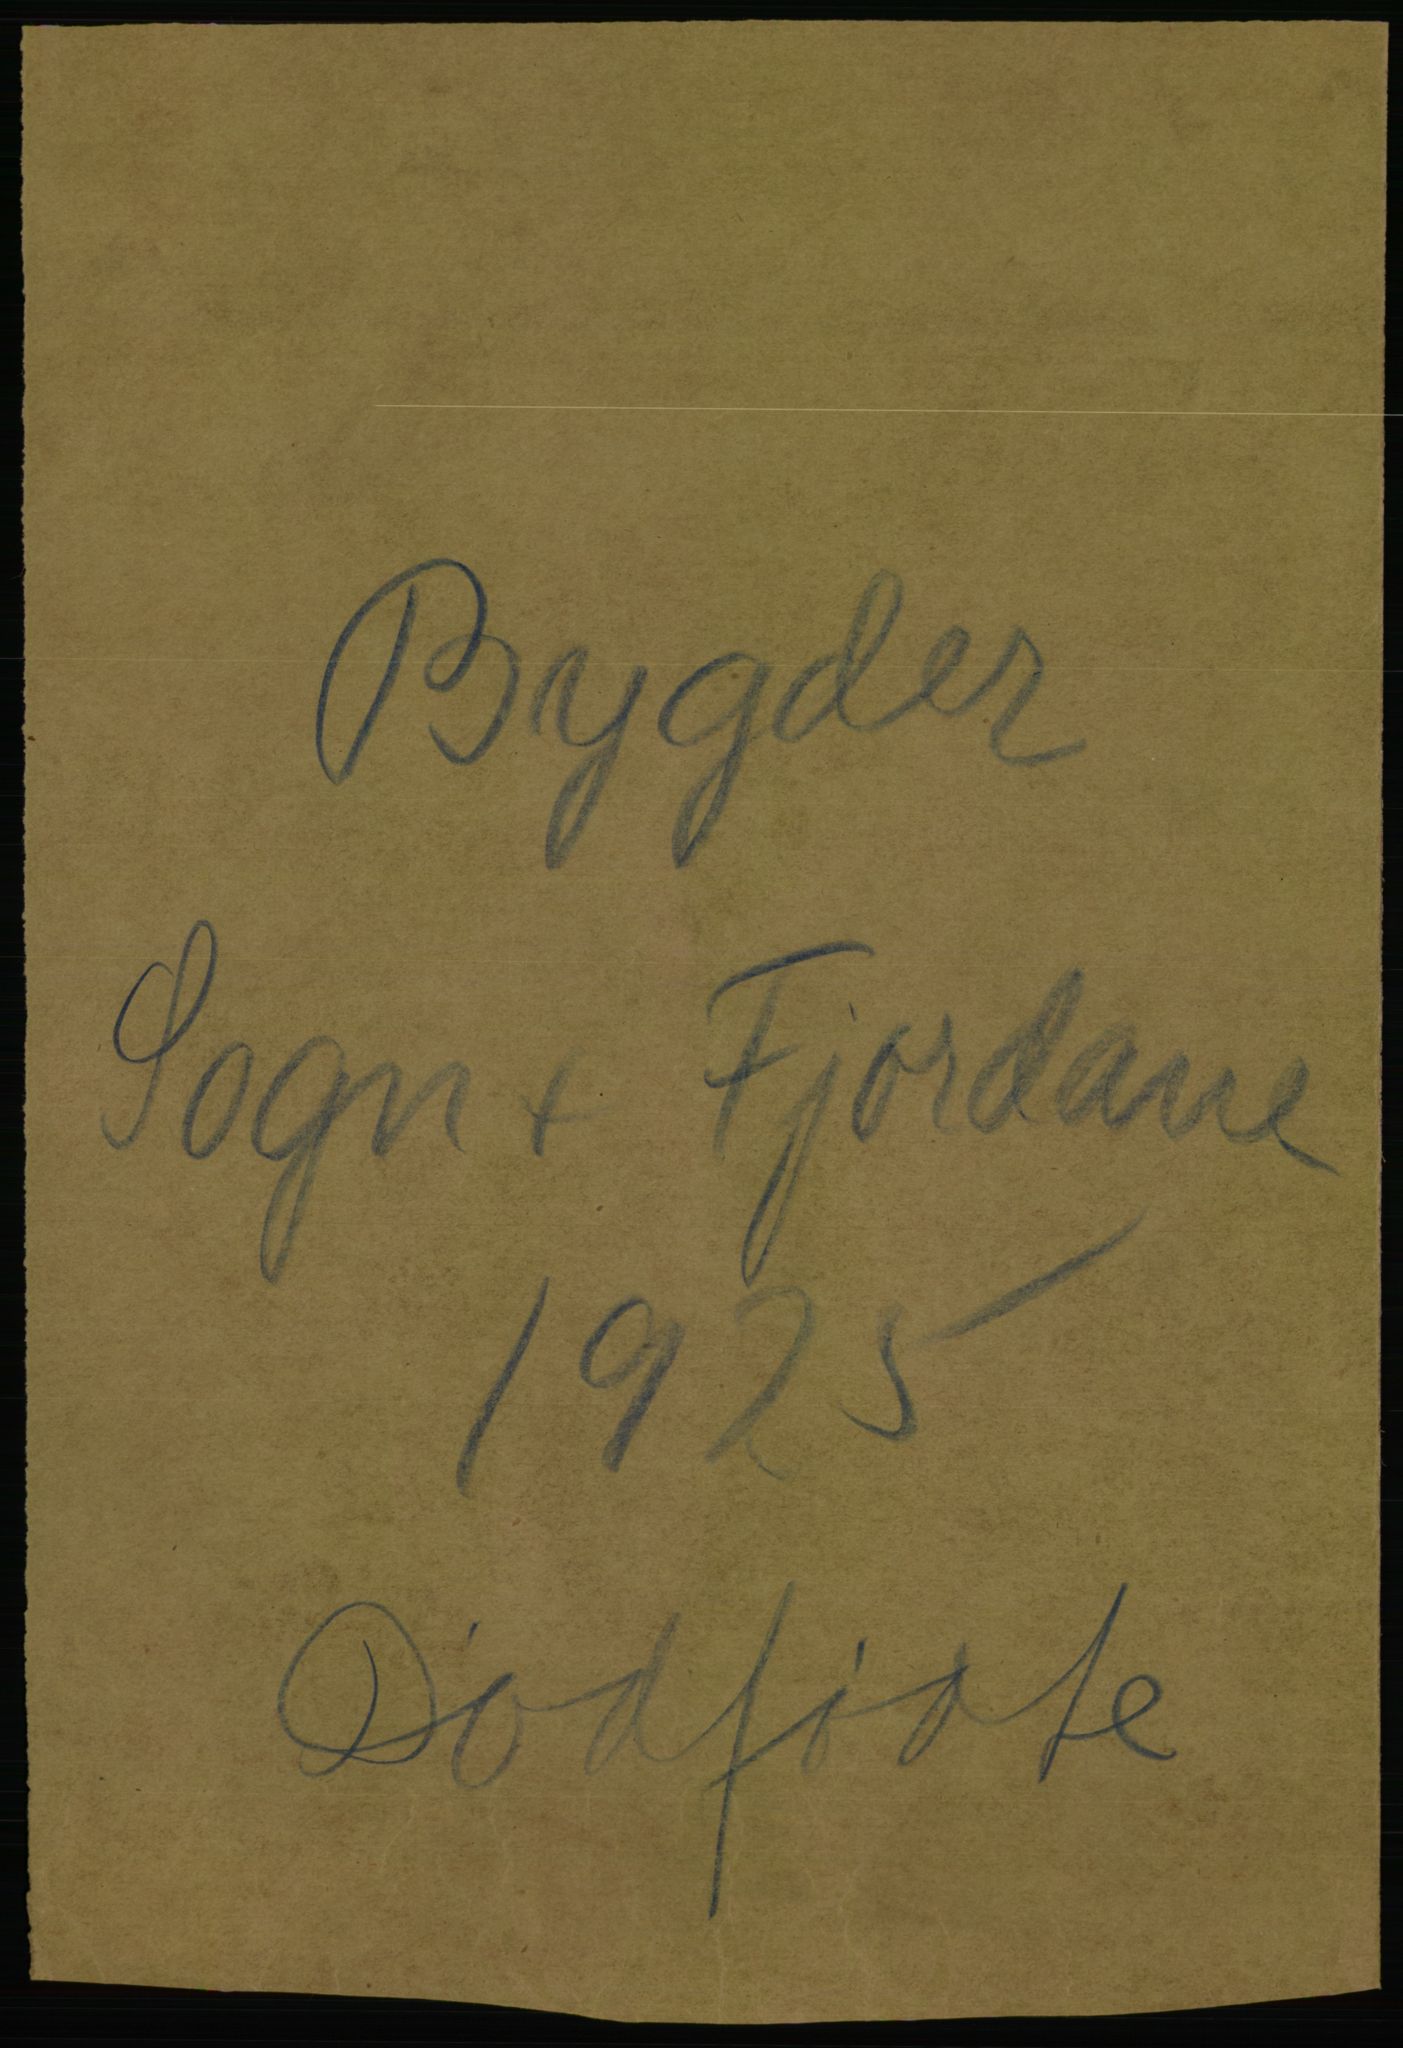 Bygder
Sogn + Fjordane
1925
Dødfødte